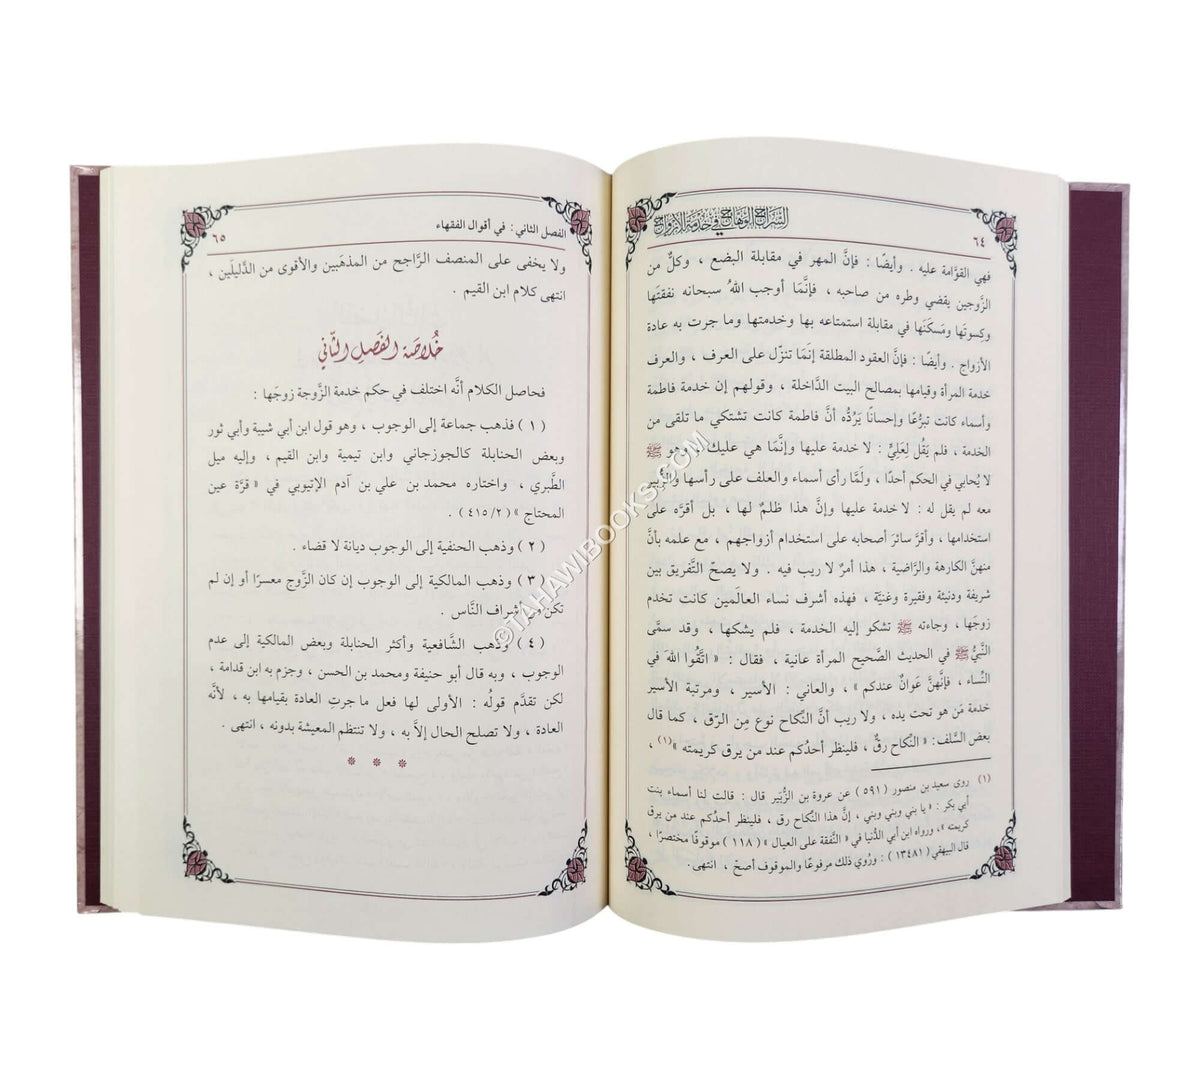 السراج الوهاج في خدمة الأزواج
٦٤
فهي القوَّامة عليه . وأيضًا : فإنَّ المهر في مقابلة البضع ، وكلٌّ من
الزَّوجين يقضي وطره من صاحبه ، فإنَّمَا أوجب اللهُ سبحانه نفقتَها
وكِسوتَها ومَسكَنَها في مقابلة استمتاعه بها وخدمتها وما جرت به عادة
الأزواج . وأيضًا : فإنَّ العقود المطلقة إنَّمَا تنزَّل على العرف ، والعرف
خدمة المرأة وقيامها بمصالح البيت الدَّاخلة ، وقولهم إن خدمة فاطمة
وأسماء كانت تبرُّعًا وإحسانًا يَرُدُّه أنَّ فاطمة كانت تشتكي ما تلقى من
الخدمة ، فلم يَقُل لِعَلِيٍّ : لا خدمة عليها وإنَّمَا هي عليك ، وهو ﷺ
لا يُحابي في الحكم أحدًا ، ولَمَّا رأى أسماء والعلف على رأسها والزُّبير
معه لم يقل له : لا خدمة عليها وإنَّ هذا ظلمٌ لها ، بل أقرَّه على
استخدامها ، وأقرَّ سائرَ أصحابه على استخدام أزواجهم ، مع علمه بأنَّ
منهنَّ الكارهة والرَّاضية ، هذا أمرٌ لا ريب فيه . ولا يصحّ التَّفريق بين
شريفة ودنيئة وفقيرة وغنيَّة ، فهذه أشرف نساء العالَمين كانت تخدم
زوجَها ، وجاءته ﷺ تشكو إليه الخدمة ، فلم يشكها ، وقد سمَّى
النَّبيُّ ﷺ في الحديث الصَّحيح المرأة عانية ، فقال : « اتَّقُوا اللهَ في
النِّساء ، فإنَّهنَّ عَوانٌ عندكم » ، والعاني : الأسير ، ومرتبة الأسير
خدمة مَن هو تحت يده ، ولا ريب أنَّ النِّكاح نوع مِن الرِّق ، كما قال
بعض السَّلف: « النِّكاح رقٌّ ، فلينظر أحدُكم عند من يرق كريمته »(١) ،
(١) روى سعيد بن منصور ( ٥٩١ ) عن عروة بن الزُّبَير قال : قالت لنا أسماء بنت
أبي بكر : « يا بني وبني وبني ، إنَّ هذا النِّكاح رق ، فلينظر أحدُكم عند من يرق
كريمته »، ورواه ابن أبي الدُّنيا في « النَّفقة على العيال » ( ١١٨ ) موقوفًا مختصرًا ،
قال البيهقي ( ١٣٤٨١ ) : ورُوي ذلك مرفوعًا والموقوف أصحّ ، انتهى.
الفصل الثاني: في أقوال الفقهاء
٦٥
ولا يخفى على المنصف الرَّاجح من المذهَبين والأقوى من الدَّليلَين ،
انتهى كلام ابن القيم .
خُلاصَة الفَصلِ الثّاني
فحاصل الكلام أنَّه اختلف في حكم خدمة الزَّوجة زوجَها :
( ١ ) فذهب جماعة إلى الوجوب ، وهو قول ابن أبي شيبة وأبي ثور
وبعض الحنابلة كالجوزجاني وابن تيمية وابن القيم ، وإليه ميل
الطَّبري ، واختاره محمد بن علي بن آدم الإتيوبي في « قرَّة عين
المحتاج » ( ٤١٥/٢ ) .
( ٢ ) وذهب الحنفية إلى الوجوب ديانة لا قضاء .
( ٣ ) وذهب المالكية إلى الوجوب إن كان الزَّوج معسرًا أو إن لم
تكن من أشراف النَّاس .
( ٤ ) وذهب الشَّافعية وأكثر الحنابلة وبعض المالكية إلى عدم
الوجوب ، وبه قال أبو حنيفة ومحمد بن الحسن ، وجزم به ابن قدامة ،
لكن تقدَّم قولُه : الأولى لها فعل ما جرتِ العادة بقيامها به ، لأنَّه
العادة ، ولا تصلح الحال إلاَّ به ، ولا تنتظم المعيشة بدونه ، انتهى .
* * *
©TAHAWIBOOKS.COM